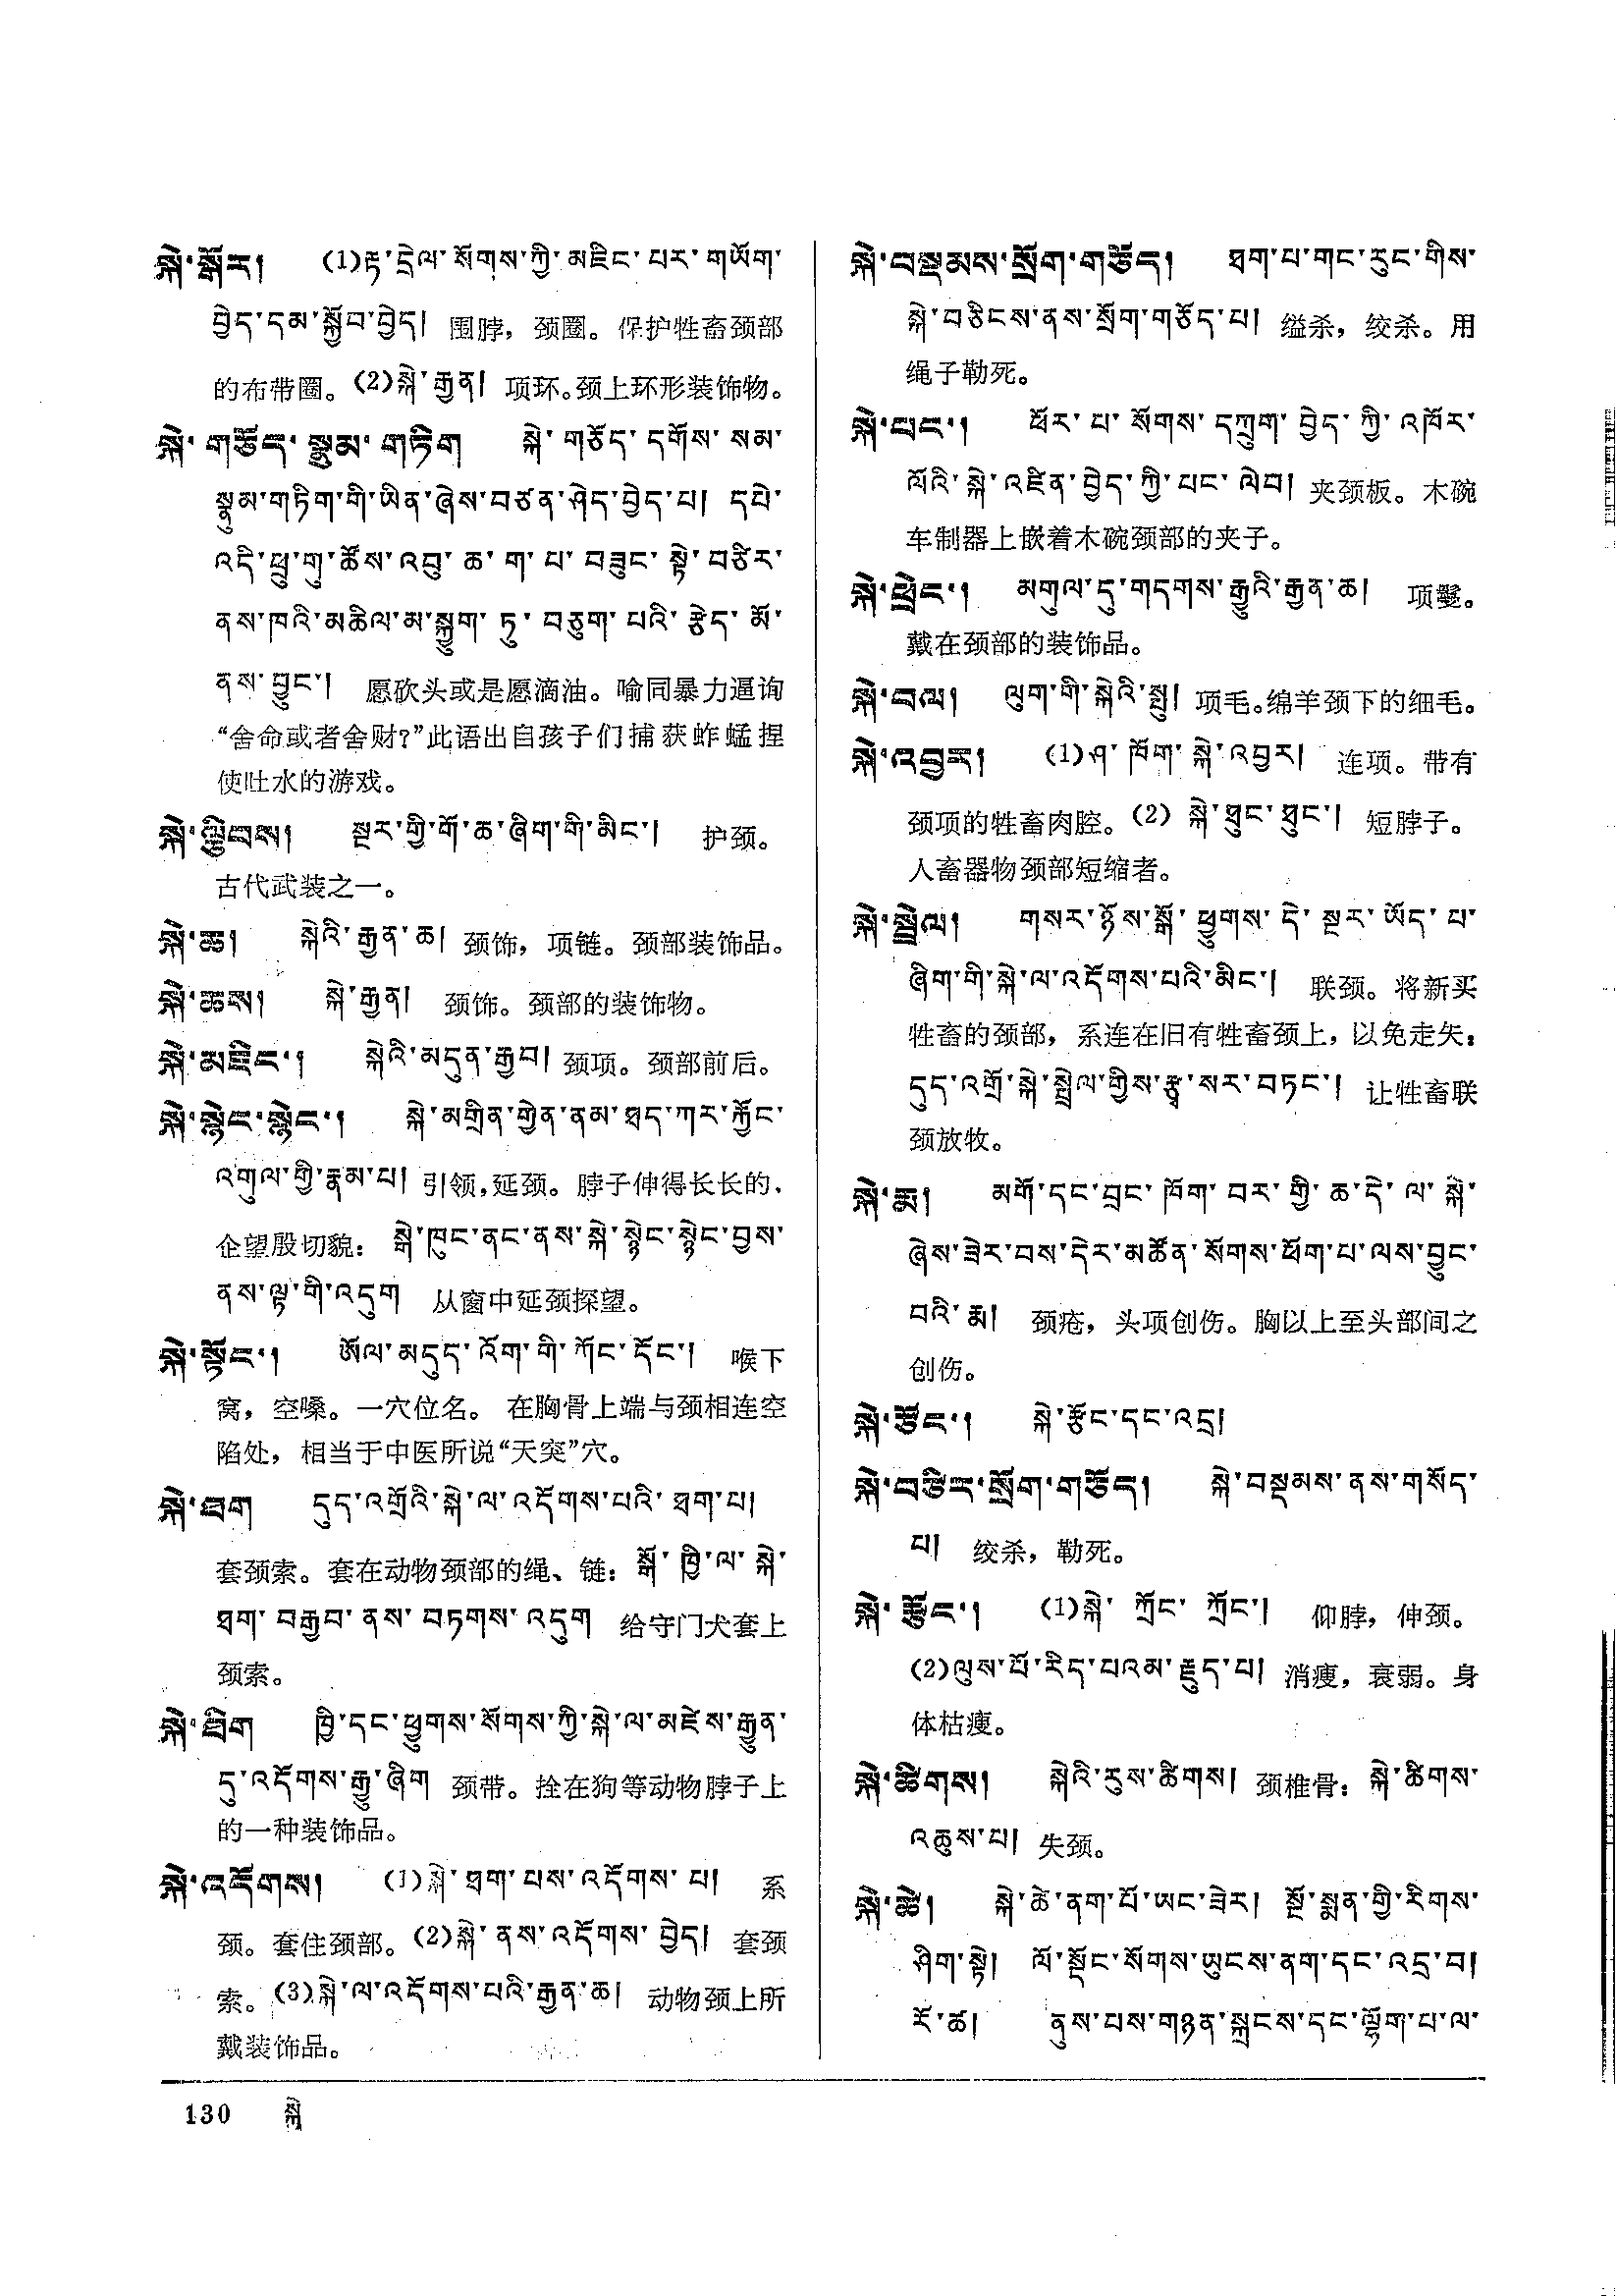 སྐེ་སྐོར། (1)རྟ་དྲེལ་སོགས་ཀྱི་མཇིང་པར་གཡོག་
བྱེད་དམ་སྐྱོབ་བྱེད། 围脖，颈圈。保护牲畜颈部
的布带圈。(2)སྐེ་རྒྱན། 项环。颈上环形装饰物。
སྐེ་གཅོད་སྣུམ་གཏིག སྐེ་གཅོད་དགོས་སམ་
སྣུམ་གཏིག་གི་ཡིན་ཞེས་བཙན་ཤེད་བྱེད་པ། དཔེ་
འདི་ཕྲུ་གུ་ཚོས་འབུ་ཆ་ག་པ་བཟུང་སྟེ་བཙིར་
ནས་ཁའི་མཆིལ་མ་སྐྱུག་ཏུ་བཅུག་པའི་རྩེད་མོ་
ནས་བྱུང་། 愿砍头或是愿滴油。喻同暴力逼询
“舍命或者舍财？”此语出自孩子们捕获蚱蜢捏
使吐水的游戏。
སྐེ་ལྕིབས། སྔར་གྱི་གོ་ཆ་ཞིག་གི་མིང་། 护颈。
古代武装之一。
སྐེ་ཆ། སྐེའི་རྒྱན་ཆ། 颈饰，项链。颈部装饰品。
སྐེ་ཆས། སྐེ་རྒྱན། 颈饰。颈部的装饰物。
སྐེ་མཇིང་། སྐེའི་མདུན་རྒྱབ། 颈项。颈部前后。
སྐེ་སྙེང་སྙེང་། སྐེ་མགྲིན་གྱེན་ནམ་ཐད་ཀར་རྐྱོང་
འགུལ་གྱི་རྣམ་པ། 引领，延颈。脖子伸得长长的，
企望殷切貌：སྒེ་ཁུང་ནང་ནས་སྐེ་སྙེང་སྙེང་བྱས་
ནས་ལྟ་གི་འདུག 从窗中延颈探望。
སྐེ་སྟོང་། ཨོལ་མདུད་འོག་གི་ཀོང་དོང་། 喉下
窝，空嗓。一穴位名。在胸骨上端与颈相连空
陷处，相当于中医所说“天突”穴。
སྐེ་ཐག དུད་འགྲོའི་སྐེ་ལ་འདོགས་པའི་ཐག་པ།
套颈索。套在动物颈部的绳、链：སྒོ་ཁྱི་ལ་སྐེ་
ཐག་བརྒྱབ་ནས་བཏགས་འདུག 给守门犬套上
颈索。
སྐེ་ཐིག ཁྱི་དང་ཕྱུགས་སོགས་ཀྱི་སྐེ་ལ་མཛེས་རྒྱན་
དུ་འདོགས་རྒྱུ་ཞིག 颈带。拴在狗等动物脖子上
的一种装饰品。
སྐེ་འདོགས། (1)སྐེ་ཐག་པས་འདོགས་པ། 系
颈。套住颈部。(2)སྐེ་ནས་འདོགས་བྱེད། 套颈
索。(3)སྐེ་ལ་འདོགས་པའི་རྒྱན་ཆ། 动物颈上所
戴装饰品。
སྐེ་བསྡམས་སྲོག་གཅོད། ཐག་པ་གང་རུང་གིས་
སྐེ་བཅིངས་ནས་སྲོག་གཅོད་པ། 缢杀，绞杀。用
绳子勒死。
སྐེ་པང་། ཕོར་པ་སོགས་དཀྲུག་བྱེད་ཀྱི་འཁོར་
ལོའི་སྐེ་འཛིན་བྱེད་ཀྱི་པང་ལེབ། 夹颈板。木碗
车制器上嵌着木碗颈部的夹子。
སྐེ་ཕྲེང་། མགུལ་དུ་གདགས་རྒྱུའི་རྒྱན་ཆ། 项鬘。
戴在颈部的装饰品。
སྐེ་བལ། ལུག་གི་སྐེའི་སྤུ། 项毛。绵羊颈下的细毛。
སྐེ་འབྱར། (1)ཤ་ཁོག་སྐེ་འབྱར། 连项。带有
颈项的牲畜肉腔。(2) སྐེ་ཐུང་ཐུང་། 短脖子。
人畜器物颈部短缩者。
སྐེ་སྦྲེལ། གསར་ཉོས་སྒོ་ཕྱུགས་དེ་སྔར་ཡོད་པ་
ཞིག་གི་སྐེ་ལ་འདོགས་པའི་མིང་། 联颈。将新买
牲畜的颈部，系连在旧有牲畜颈上，以免走失：
དུད་འགྲོ་སྐེ་སྦྲེལ་གྱིས་རྩྭ་སར་བཏང་། 让牲畜联
颈放牧。
སྐེ་རྨ། མགོ་དང་བྲང་ཁོག་བར་གྱི་ཆ་དེ་ལ་སྐེ་
ཞེས་ཟེར་བས་དེར་མཚོན་སོགས་ཕོག་པ་ལས་བྱུང་
བའི་རྨ། 颈疮，头项创伤。胸以上至头部间之
创伤。
སྐེ་ཙོང་། སྐེ་རྩོང་དང་འདྲ།
སྐེ་བཙིར་སྲོག་གཅོད། སྐེ་བསྡམས་ནས་གསོད་
པ། 绞杀，勒死。
སྐེ་རྩོང་། (1)སྐེ་ཀྲོང་ཀྲོང་། 仰脖，伸颈。
(2)ལུས་པོ་རིད་པའམ་རྫུད་པ། 消瘦，衰弱。身
体枯瘦。
སྐེ་ཚིགས། སྐེའི་རུས་ཚིགས། 颈椎骨：སྐེ་ཚིགས་
འཆུས་པ། 失颈。
སྐེ་ཚེ། སྐེ་ཚེ་ནག་པོ་ཡང་ཟེར། སྔོ་སྨན་གྱི་རིགས་
ཤིག་སྟེ། ལོ་སྡོང་སོགས་ཡུངས་ནག་དང་འདྲ་བ།
རོ་ཚ། ནུས་པས་གཉན་སྐྲངས་དང་ལྷོག་པ་ལ་
130 སྐེ